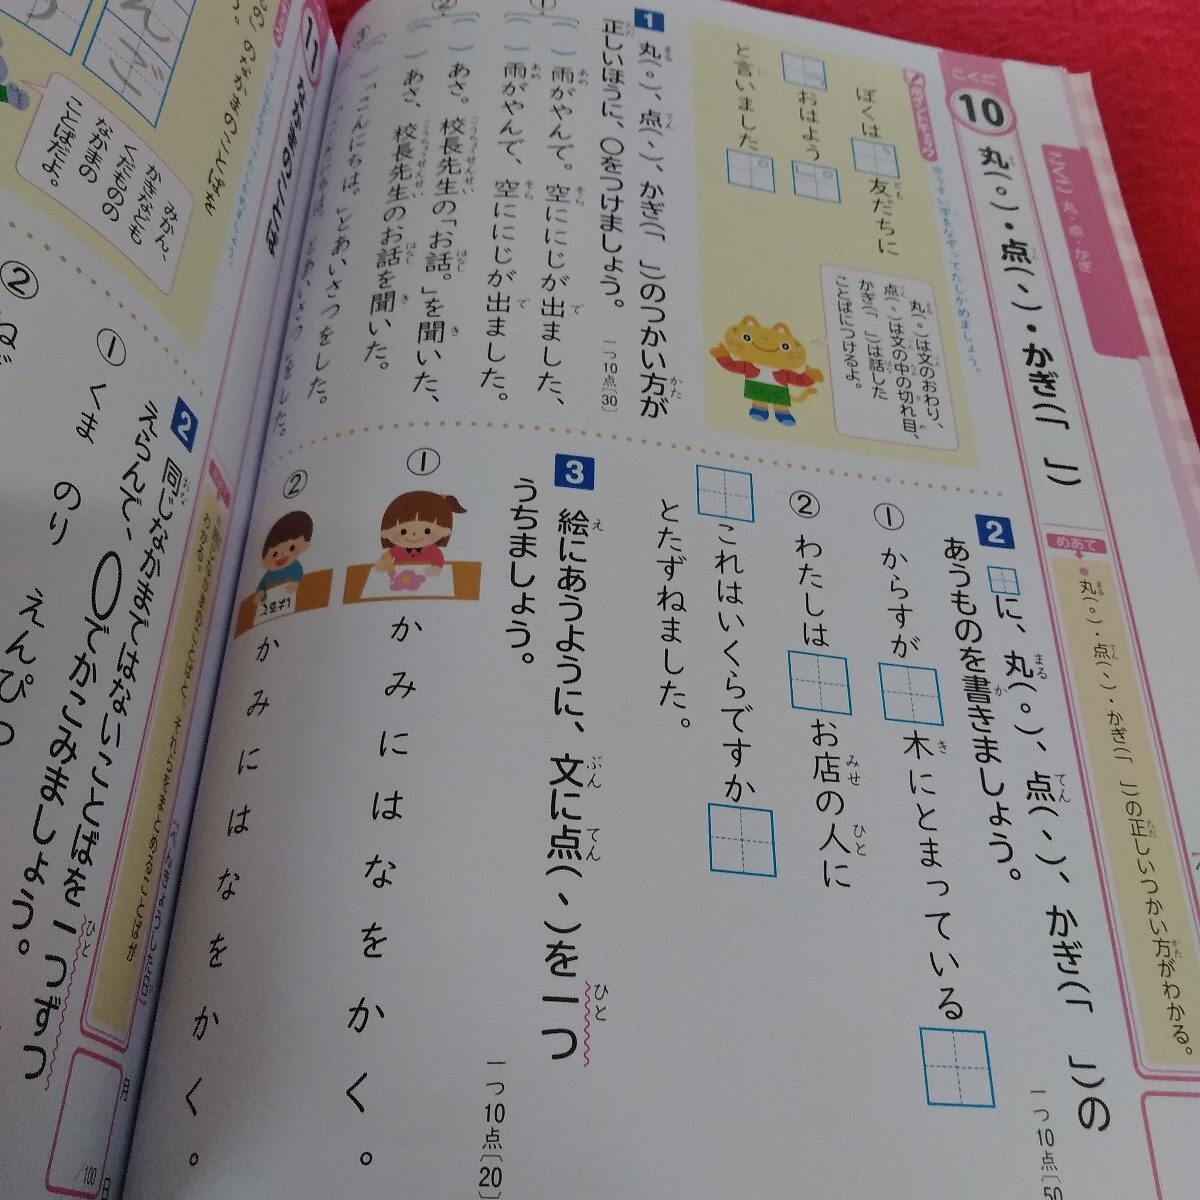 こくご 丸・点・かぎ
こくご
10
丸(。)・点(、)・かぎ(「 」)
めあて
●丸(。)・点(、)・かぎ(「 」)の正しいつかい方がわかる。
ポイントチェック
ぼくは、友だちに
「おはよう。」
と言いました。
丸(。)は文のおわり、
点(、)は文の中の切れ目、
かぎ(「 」)は話した
ことばにつけるよ。
1 丸(。)、点(、)、かぎ(「 」)のつかい方が
正しいほうに、○をつけましょう。
一つ10点〔30〕
①
( )雨がやんで。空ににじが出ました、
( )雨がやんで、空ににじが出ました。
②
( )あさ。校長先生の「お話。」を聞いた、
( )あさ、校長先生のお話を聞いた。
③
( )「こんにちは。」とあいさつをした。
2 □に、丸(。)、点(、)、かぎ(「 」)の
あうものを書きましょう。
一つ10点〔50
① からすが□木にとまっている□
② わたしは□お店の人に
□これはいくらですか□
とたずねました。
3 絵にあうように、文に点(、)を一つ
うちましょう。
一つ10点〔20〕
① かみにはなをかく。
② かみにはなをかく。
11
みかん、
かきなども
くだものの
なかまの
ことばだよ。
2 同じなかまではないことばを一つずつ
えらんで、○でかこみましょう。
① くま のり えんぴつ
②
/100
月
日